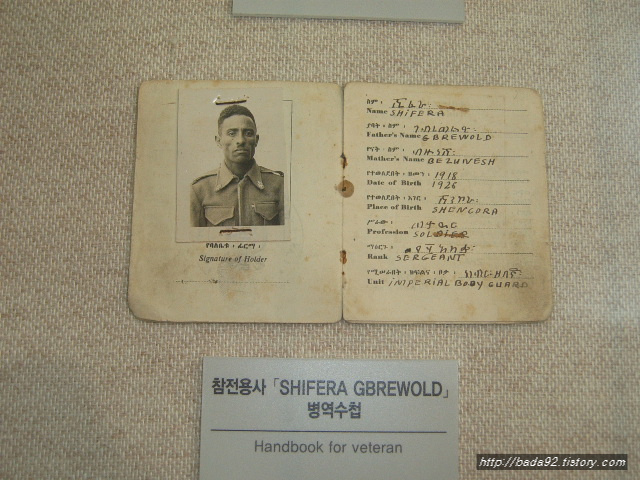 የባለቤቱ ፡ ፊርማ ፡
Signature of Holder
ስም ፡
Name SHIFERA
ያባት ፡ ስም ፡
Father's Name GBREWOLD
የናት ፡ ስም ፡
Mother's Name BEZUNESH
የተወለደበት ፡ ዘመን ፡ 1918
Date of Birth 1926
የተወለደበት ፡ አገር ፡
Place of Birth SHENCORA
ሥራው ፡
Profession SOLDIER
ማዕርግ ፡
Rank SERGEANT
Unit IMPERIAL BODY GUARD
참전용사 「SHIFERA GBREWOLD」
병역수첩
Handbook for veteran
http://bada92.tistory.com